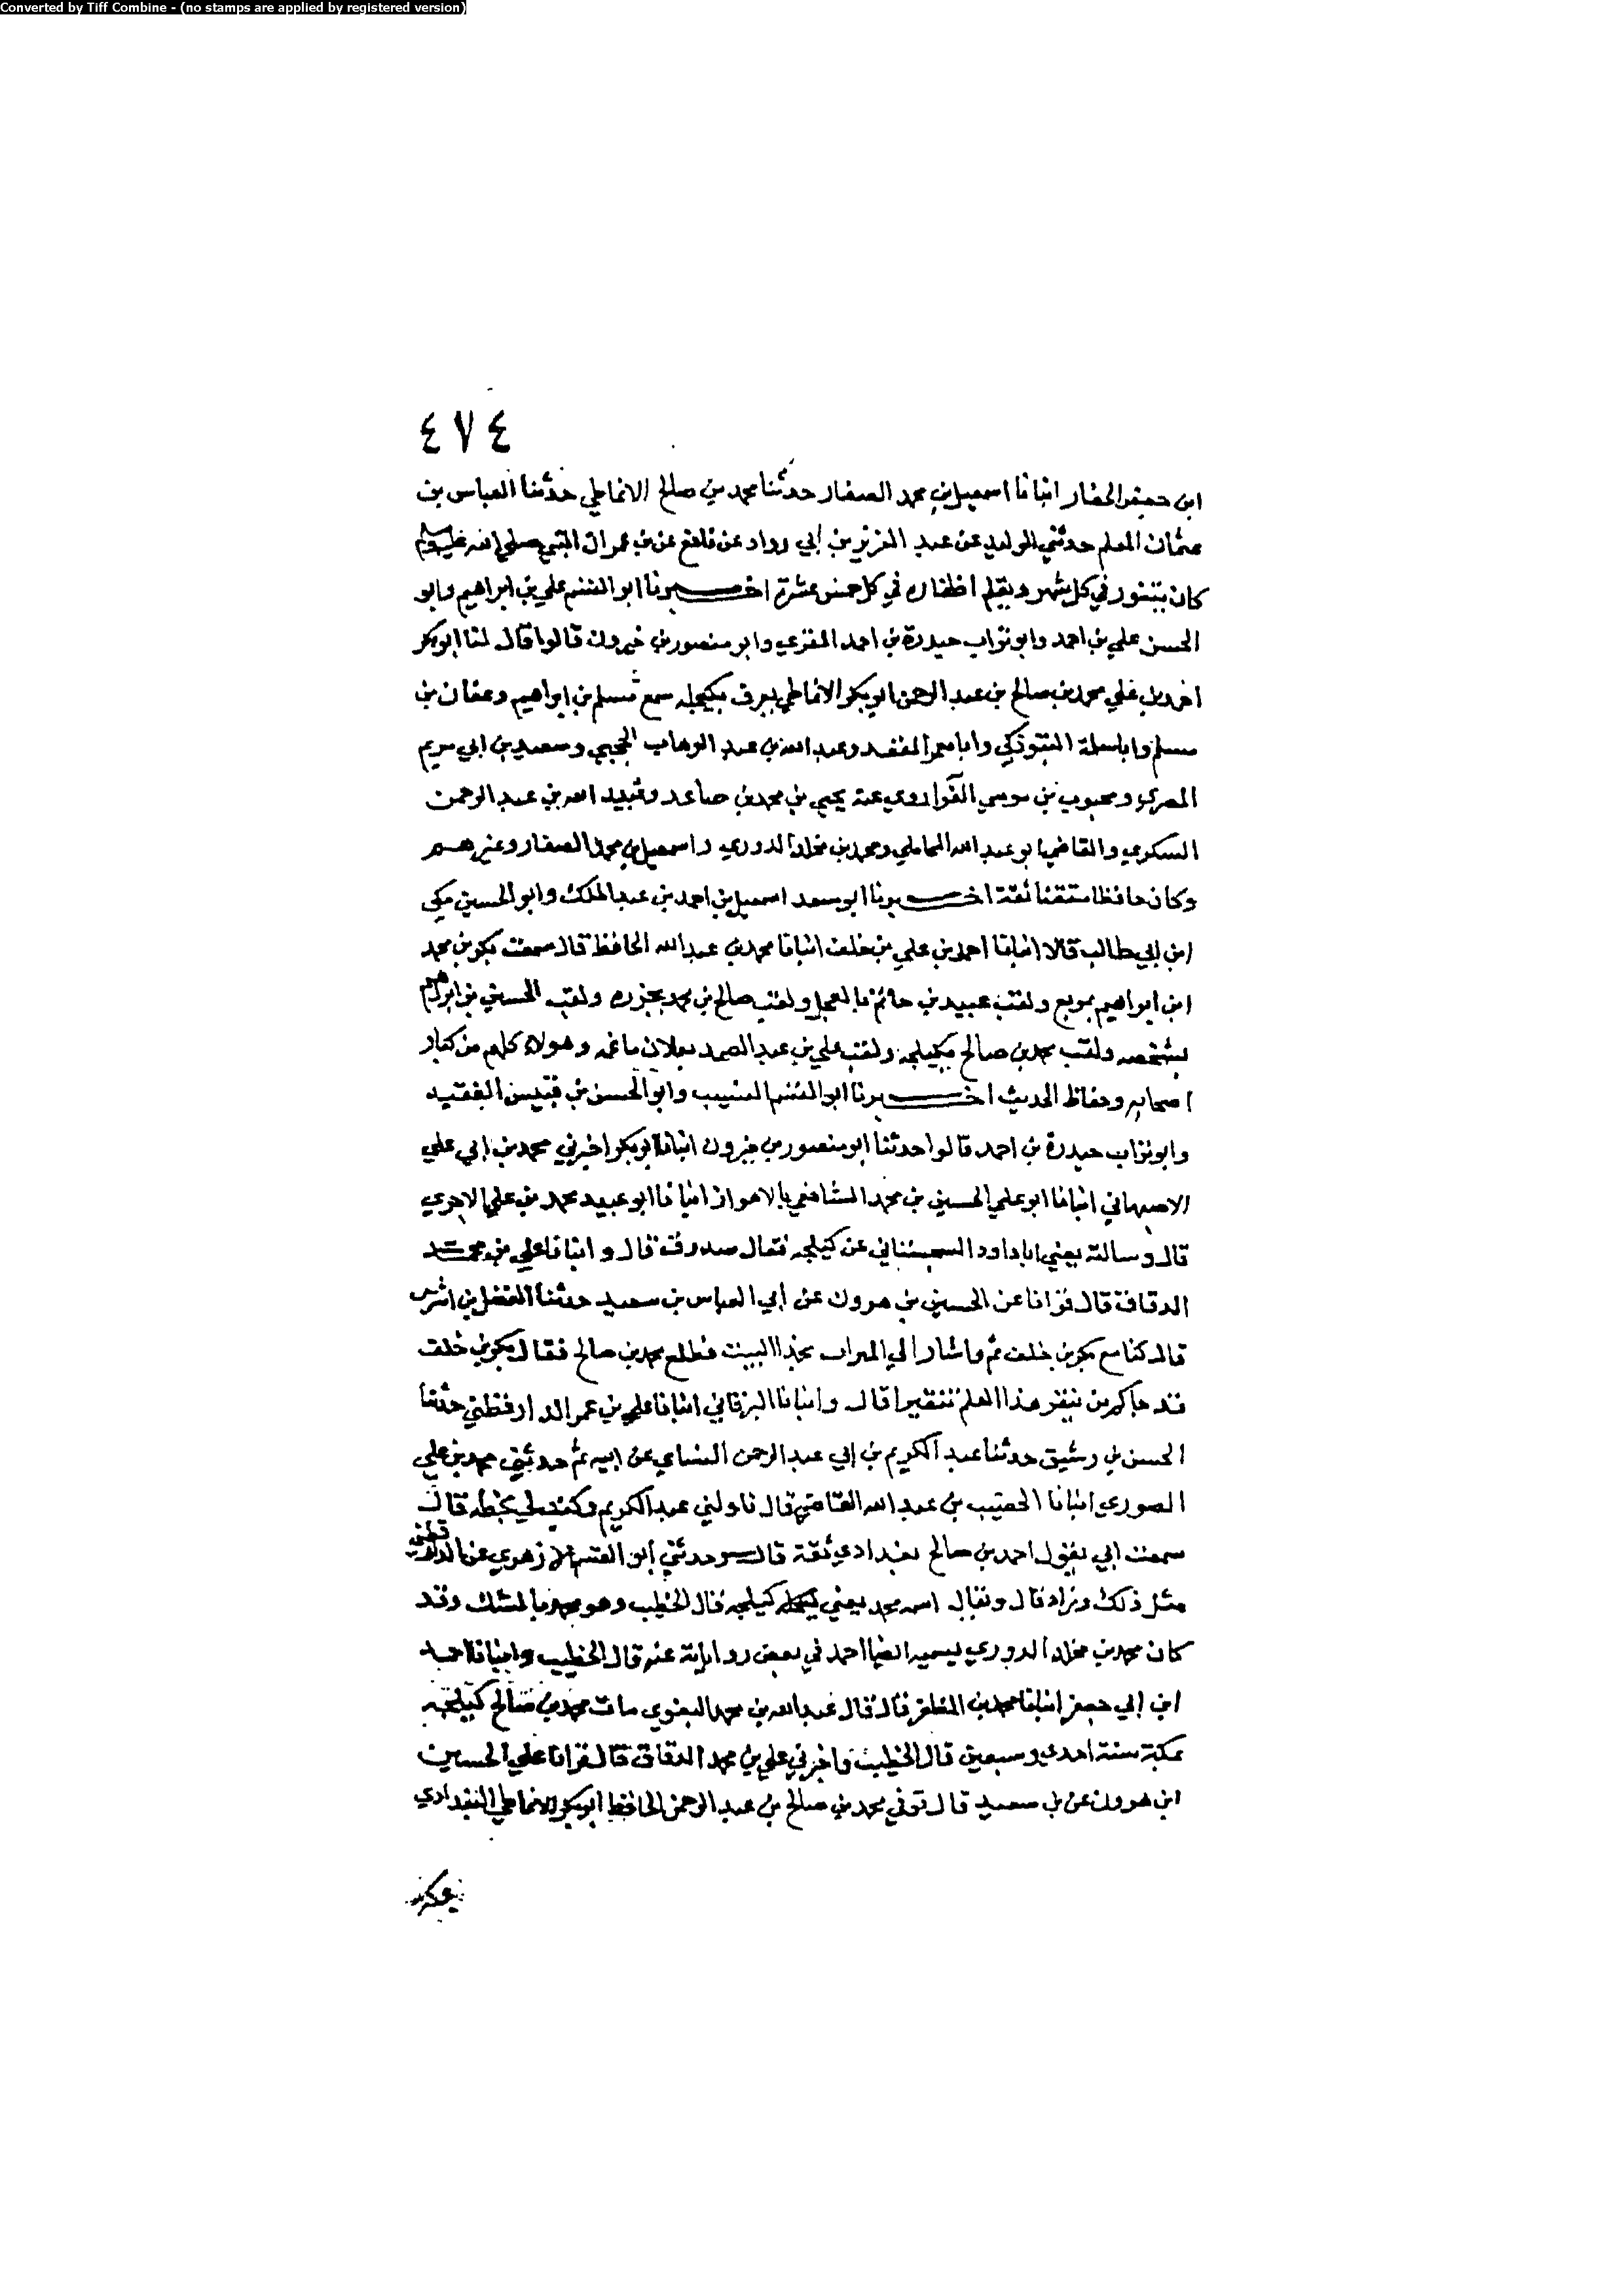 Converted by Tiff Combine - (no stamps are applied by registered version)
٤٧٤
ابن جعفر الحفار انبانا اسمعيل بن محمد الصفار حدثنا محمد بن صالح الانماطي حدثنا العباس بن
عثمان المعلم حدثني الوليد عن عبد العزيز بن ابي رواد عن نافع عن بن عمر ان النبي صلى الله عليه وسلم
كان يتنور في كل شهر ويقلم اظفاره في كل خمس عشرة اخبرنا ابو القسم علي بن ابراهيم وابو
الحسن علي بن احمد وابو تراب حيدرة بن احمد المقري وابو منصور بن خيرون قالوا قال لنا ابو بكر
احمد بن علي محمد بن صالح بن عبد الرحمن ابو بكر الانماطي يعرف بكيجله سمع مسلم بن ابراهيم وعفان بن
مسلم وابا سلمة التبوذكي وابا معمر المقعد وعبد الله بن عبد الوهاب الحجبي وسعيد بن ابي مريم
المصري ومحبوب بن موسى الفرا روي عنه يحيى بن محمد بن صاعد وعبيد الله بن عبد الرحمن
السكري والقاضي ابو عبد الله المحاملي ومحمد بن مخلد الدوري واسمعيل بن محمد الصفار وغيرهم
وكان حافظا متقنا ثقة اخبرنا ابو سعد اسمعيل بن احمد بن عبد الملك وابو الحسين مكي
ابن ابي طالب قالا انبانا احمد بن علي بن خلف انبانا محمد بن عبد الله الحافظ قال سمعت بكر بن محمد
ابن ابراهيم بمربع ولقب عبيد بن حاتم بالعجل ولقب صالح بن محمد بجزره ولقب الحسين بن ابراهيم
بشخصه ولقب محمد بن صالح بكيلجه ولقب علي بن عبد الصمد بعلان ماغمه وهولاء كلهم من كبار
اصحابه وحفاظ الحديث اخبرنا ابو القسم النسيب وابو الحسن بن قبيس الفقيه
وابو تراب حيدرة بن احمد قالوا حدثنا ابو منصور بن خيرون انبانا ابو بكر اخبرني محمد بن ابي علي
الاصبهاني انبانا ابو علي الحسين بن محمد الشافعي بالاهواز انبانا ابو عبيد محمد بن علي الاجري
قال وسالته يعني ابا داود السجستاني عن كيلجه فقال صدوق قال وانبانا علي بن محمد
الدقاق قال قرانا عن الحسين بن هرون عن ابي العباس بن سعيد حدثنا الفضل بن اشرس
قال كنا مع بكر بن خلف ثم واشار الى الميراب بحذا البيت فطلع محمد بن صالح فقال بكر بن خلف
قد جاكم من ينقر هذا العلم تنقيرا قال وانبانا البرقاني انبانا علي بن عمر الدارقطني حدثنا
الحسن بن رشيق حدثنا عبد الكريم بن ابي عبد الرحمن النساي عن ابيه ثم حدثني محمد بن علي
الصوري انبانا الخصيب بن عبد الله القاضي قال ناولني عبد الكريم وكتب لي بخطه قال
سمعت ابي يقول احمد بن صالح بغدادي ثقة قال وحدثني ابو القسم الازهري عن الدارقطني
مثل ذلك وزاد قال ويقال اسمه محمد يعني كيلجه قال الخطيب وهو محمد بلا شك وقد
كان محمد بن مخلد الدوري يسميه ايضا احمد في بعض رواياته عنه قال الخطيب وانبانا احمد
ابن ابي جعفر انبانا محمد بن المظفر قال قال عبد الله بن محمد البغوي مات محمد بن صالح كيلجه
بمكة سنة احدى وسبعين قال الخطيب واخبرني علي بن محمد الدقاق قال قرانا علي الحسين
ابن هرون عن بن سعيد قال توفي محمد بن صالح بن عبد الرحمن الحافظ ابو بكر الانماطي البغدادي
بمكة